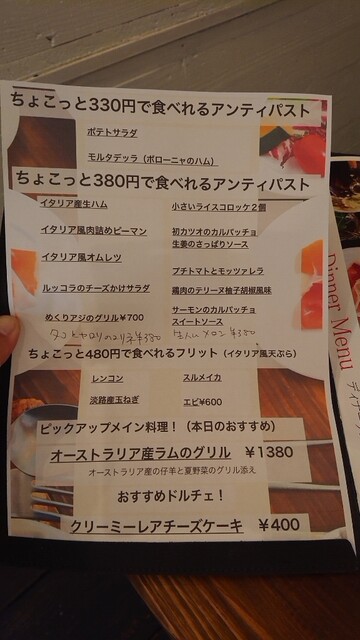 ちょこっと330円で食べれるアンティパスト
ポテトサラダ
モルタデッラ（ボローニャのハム）
ちょこっと380円で食べれるアンティパスト
イタリア産生ハム
小さいライスコロッケ2個
イタリア風肉詰めピーマン
初カツオのカルパッチョ
生姜のさっぱりソース
イタリア風オムレツ
プチトマトとモッツァレラ
ルッコラのチーズかけサラダ
鶏肉のテリーヌ柚子胡椒風味
めくりアジのグリル￥700
サーモンのカルパッチョ
スイートソース
¥380
生ハムメロン ¥380
ちょこっと480円で食べれるフリット（イタリア風天ぷら）
レンコン
スルメイカ
淡路産玉ねぎ
エビ￥600
ピックアップメイン料理！（本日のおすすめ）
オーストラリア産ラムのグリル　￥1380
オーストラリア産の仔羊と夏野菜のグリル添え
おすすめドルチェ！
クリーミーレアチーズケーキ　￥400
Dinner Menu